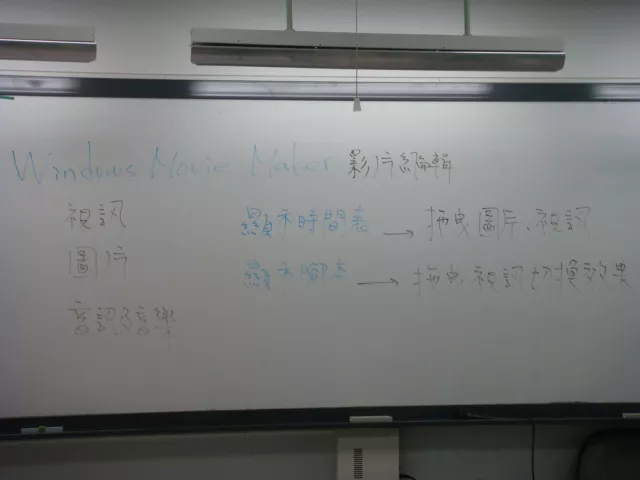 Windows Movie Maker 影片編輯
視訊
圖片
音訊及音樂
顯示時間表 → 拖曳圖片、視訊
顯示腳本 → 拖曳視訊切換效果